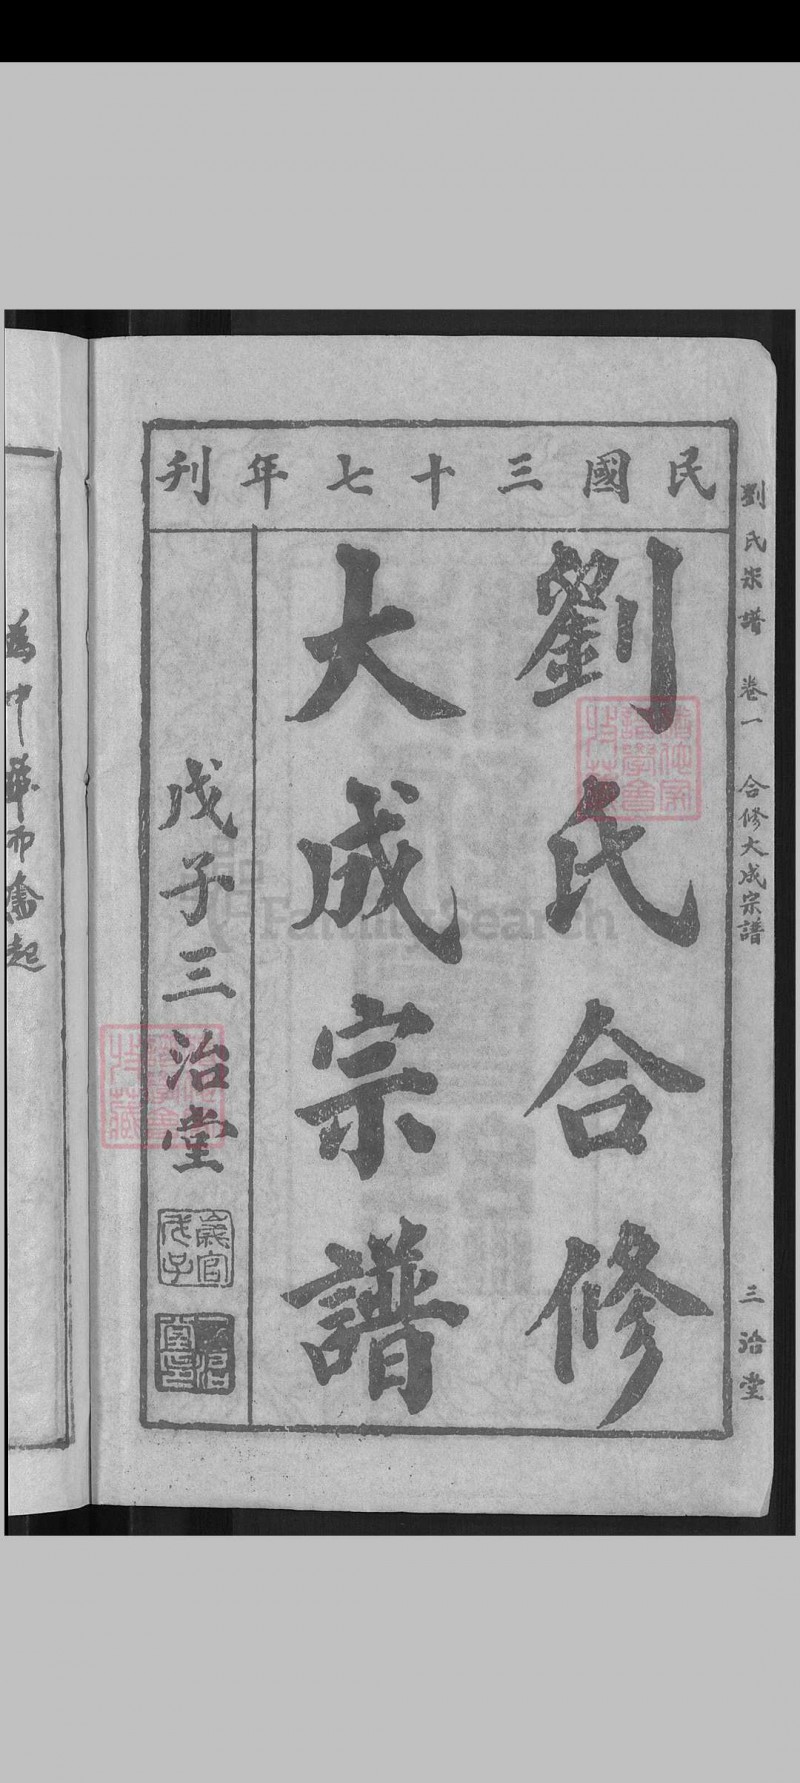 民國三十七年刊
劉氏合修
大成宗譜
戊子三治堂
歲官戊子
三治堂印
劉氏宗譜 卷一 合修大成宗譜 三治堂
為中華而奮起
FamilySearch